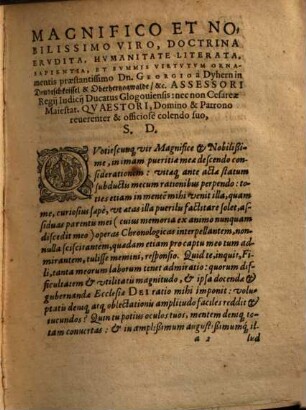 MAGNIFICO ET NO-
BILISSIMO VIRO, DOCTRINA
ERVDITA, HVMANITATE LITERATA,
SAPIENTIA, ET SVMMIS VIRTVTVM ORNA-
mentis præstantissimo Dn. GEORGIO à Dyhern in
& Oberherzogswaldt &c. ASSESSORI
Regij Iudicij Ducatus Glogouiensis: nec non Cesareæ
Maiestat. QVAESTORI, Domino & Patrono
reuerenter & officiose colendo suo,
S. D.
QVotiescunq vir Magnifice & Nobilissi-
me, in imam pueritia mea descendo con-
siderationem: vitaq ante acta statum
subductis mecum rationibus perpendo: to-
ties etiam in mentē mihi venit illa, quam
me, curiosius sæpè, vt ætas illa puerilis factitare solet, as-
siduas parenti mei (cuius memoria ex animo nunquam
discedit meo) operas Chronologicas interpellantem, non-
nulla sciscitantem, quadam etiam pro captu meo tum ad-
mirantem, tulisse memini, responsio. Quid te, inquit, Fi-
li, tanta meorum laborum tenet admiratio: quorum dif-
ficultatem & vtilitatis magnitudo, & ipsa docenda &
gubernanda Ecclesiæ DEI ratio mihi imponit: volu-
ptatis deniq atq oblectationis amplitudo faciles reddit &
iucundos? Quin tu potius oculos tuos, mentem deniq to-
tam conuertas: & in amplissimum augustissimumq il-
a 2 lud